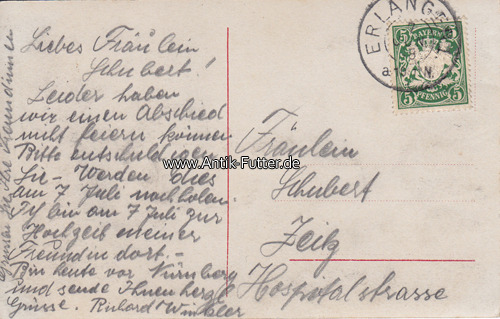 Liebes Fräulein
Schubert!
Leider haben
wir unsen Abschied
nicht feiern können
Bitte entschuldigen
Sie - Werden dies
am 7 Juli nachholen.
bin am 7 Juli zur
Hochzeit meiner
Freundin dort. -
Bin heute vor Nürnberg
und sende Ihnen herzl.
Grüsse.
Fräulein
Schubert
Zeitz
Hospitalstrasse
ERLANGEN
BAYERN
5 5
PFENNIG
www.Antik-Futter.de